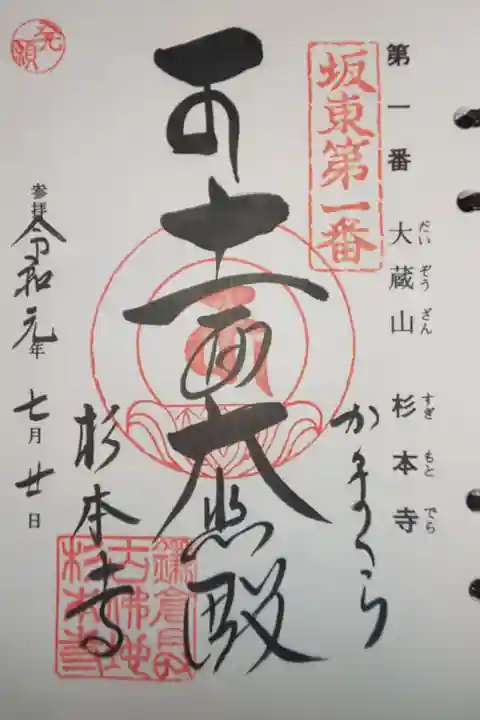 第一番 大蔵山 杉本寺
だい ぞう ざん すぎ もと でら
坂東第一番
かまくら
十一面大悲殿
杉本寺
鎌倉最
古佛地
杉本寺
発願
参拝 令和元年七月廿日